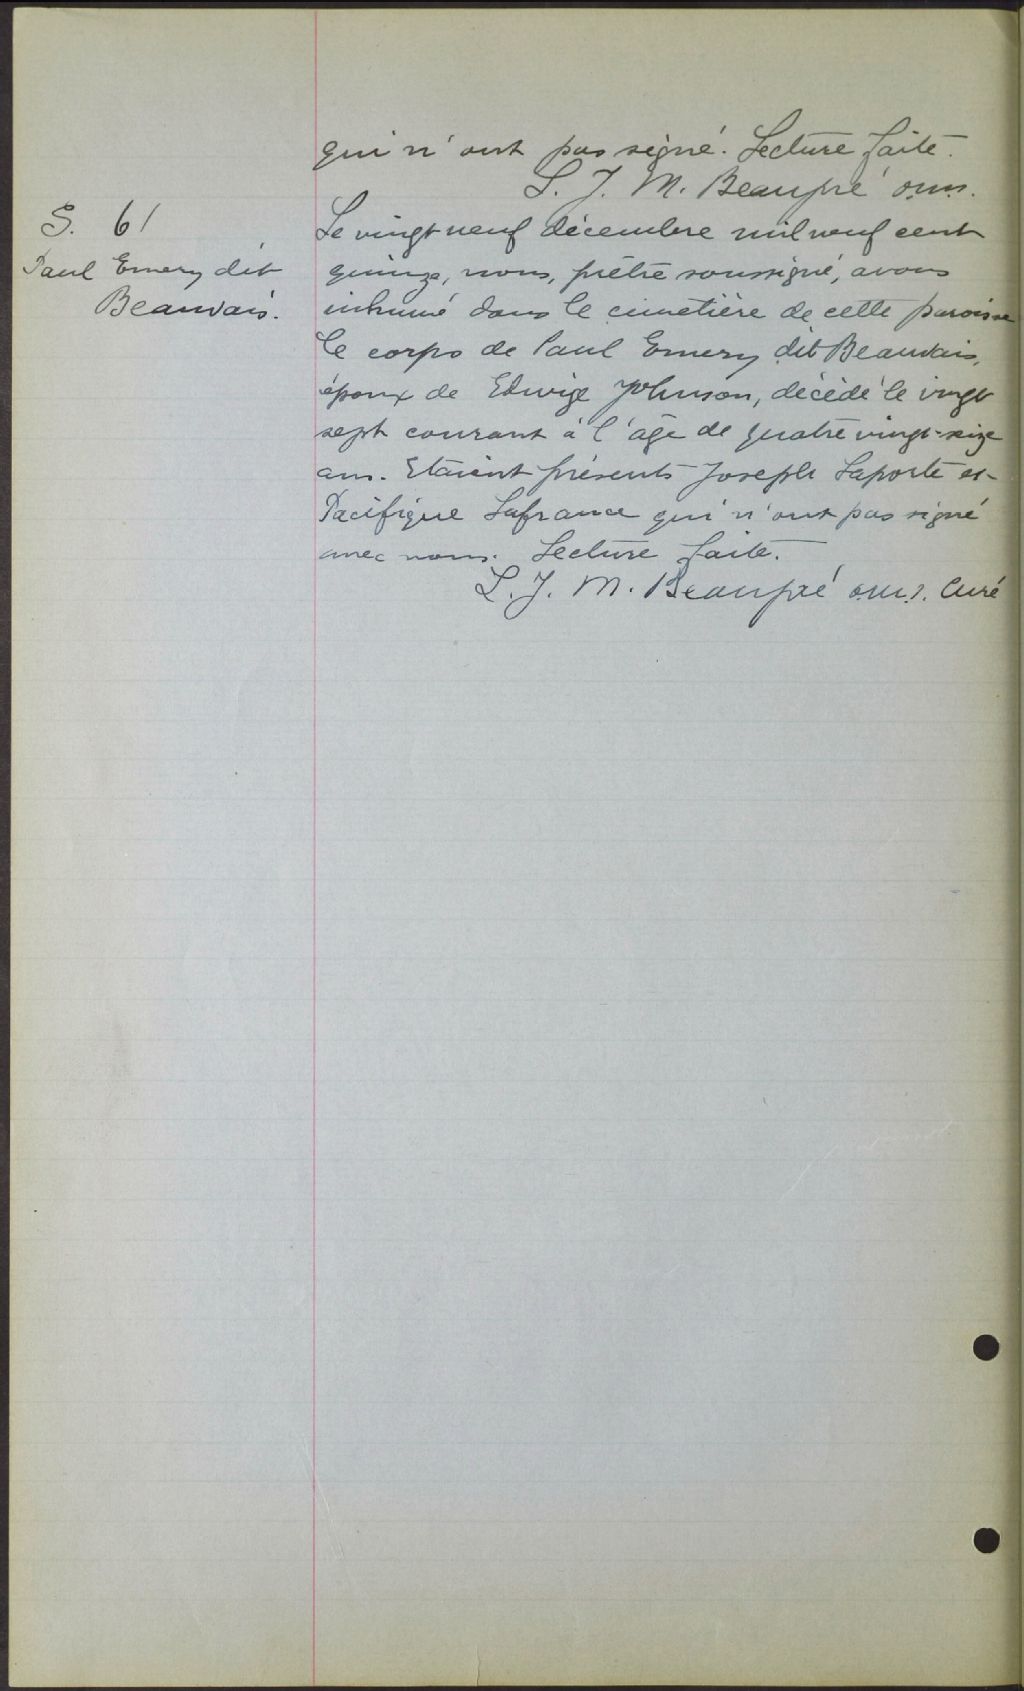 qui n'ont pas signé. Lecture faite.
L. J. M. Beaupré o.m.s.
S. 61
Paul Emery dit
Beauvais.
Le vingt neuf décembre mil neuf cent
quinze, nous, prêtre soussigné, avons
inhumé dans le cimetière de cette paroisse
le corps de Paul Emery dit Beauvais,
époux de Edwige Johnson, décédé le vingt
sept courant à l'âge de quatre vingt-seize
ans. Etaient présents Joseph Laporte et
Pacifique Lafrance qui n'ont pas signé
avec nous. Lecture faite.
L. J. M. Beaupré o.m.s. Curé